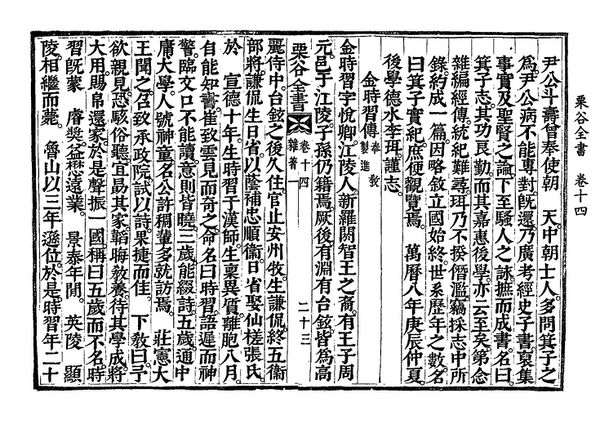 栗谷全書 卷十四
尹公斗壽曾奉使朝 天中朝士人多問箕子之
爲尹公病不能專對旣還乃廣考經史子書裒集
事實及聖賢之論下至騷人之詠摭而成書名曰
箕子志其功良勤而其嘉惠後學亦云至矣第念
雜編經傳統紀難尋珥乃不揆僭濫竊採志中所
錄約成一篇因略敍立國始終世系歷年之數名
曰箕子實紀庶便觀覽焉 萬曆八年庚辰仲夏
後學德水李珥謹志
金時習傳 奉敎製進
金時習字悅卿江陵人新羅閼智王之裔有王子周
元邑于江陵子孫仍籍焉厥後有淵有台鉉皆爲高
栗谷全書 卷十四 雜著一 二十三
麗侍中台鉉之後久住官止安州牧生謙侃終五衛
部將謙侃生日省以蔭補忠順衛日省娶仙槎張氏
於 宣德十年生時習于漢師生稟異質離胞八月
自能知書崔致雲見而奇之命名曰時習語遲而神
警臨文口不能讀意則皆曉三歲能綴詩五歲通中
庸大學人號神童名公許稠輩多就訪焉 莊憲大
王聞之召致承政院試以詩果捷而佳 下敎曰予
欲親見恐駭俗聽宜勗其家韜晦敎養待其學成將
大用賜帛還家於是聲振一國稱曰五歲而不名時
習旣蒙 睿奬益懋遠業 景泰年間 英陵 顯
陵相繼而薨 魯山以三年遜位於是時習年二十